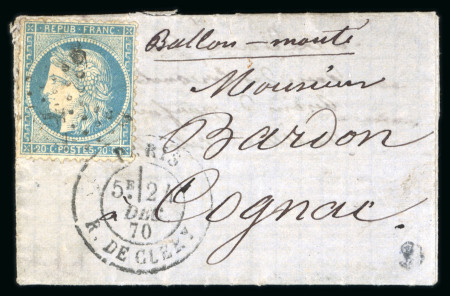 REPUB · FRANC
20 C · POSTES · 20 C
Ballon-monté
Monsieur
Bardon
Cognac
PARIS
5E 2
DEC
70
R. DE CLERY